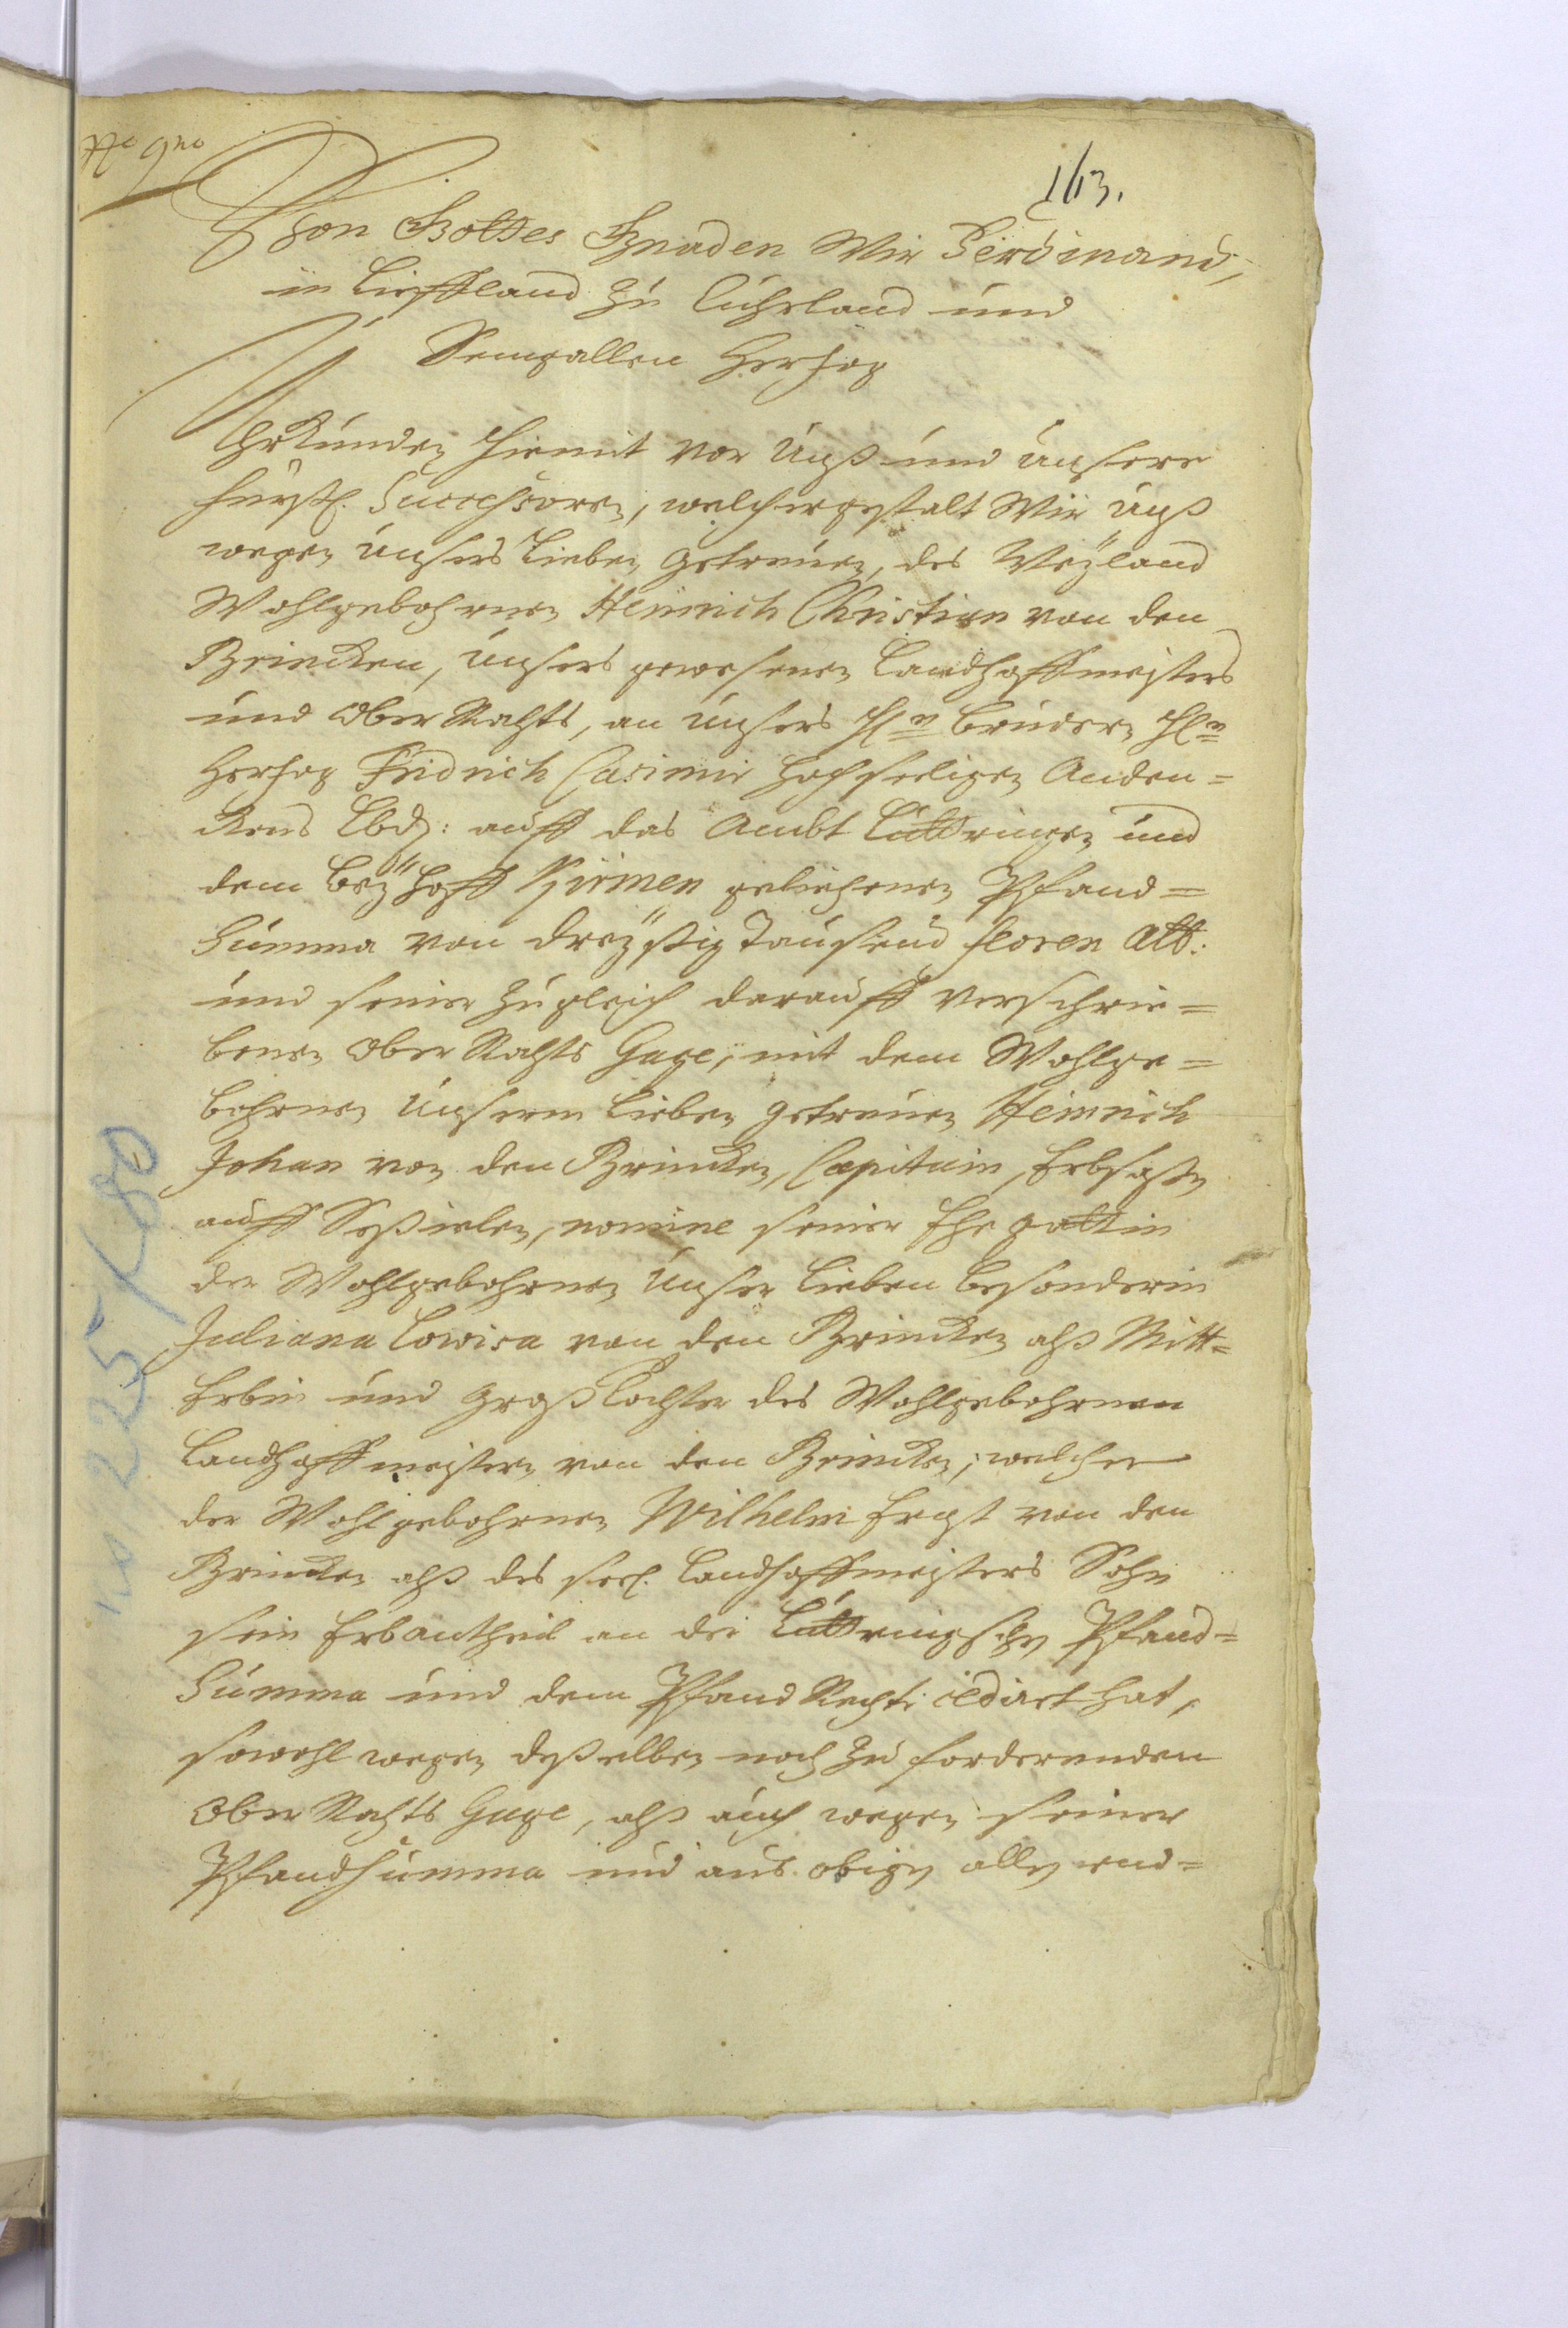 No 9no
113.
Von Gottes Gnaden Wir Ferdinand,
in Lieffland zu Cuhrland und
Semgallen Hertzog
Uhrkunden hiemit vor Unß und Unsere
fürstl. Successoren, welchergestalt Wir Unß
wegen Unsers Lieben getreuen, des Weyland
Wohlgebohrnen Heinrich Christian von den
Brincken, Unsers gewesenen Landhoffmeisters
und Ober Rahts, an Unsers Hn Brudern Hn
Hertzog Fridrich Casimir hochseeligen Anden=
ckens Lbd: auff das Ambt Luttringen und
dem Beyhoff Kirmen geliehenen Pfand=
Summa von dreyßig Tausend floren Alb:
und seiner zugleich darauff verschrie=
benen Ober Rahts Gage, mit dem Wohlge=
bohrnen Unserm Lieben getreuen Heinrich
Johan von den Brincken, Capitain, Erbsaßen
auff Seßielen, nomine seiner Ehe gattin
der Wohlgebohrnen Unser Lieben besonderin
Juliana Lowisa von den Brincken alß Mitt=
Erbin und Groß Tochter des Wohlgebohrnen
Landhoffmeistern von den Brincken, welcher
der Wohlgebohrnen Wilhelm Ernst von den
Brincken alß des seel. Landhoffmeisters Sohn
sein Erbantheil an der Luttringschen Pfand=
Summa und dem Pfand Recht cediret hat,
sowohl wegen deßelben noch zu forderenden
Ober Rahts Gage, alß auch wegen seiner
Pfandsumma und aus obigen allen end=
10 225/80